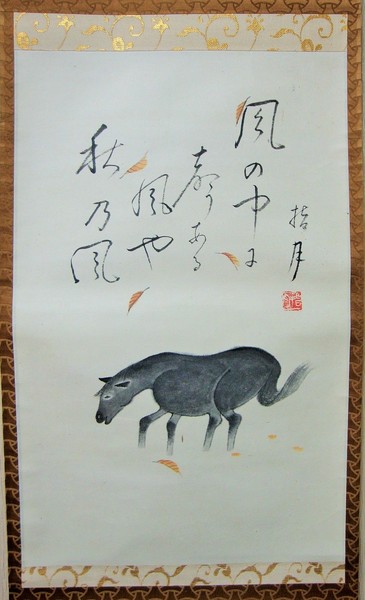 風の中に
ある
風や
秋乃風
指月